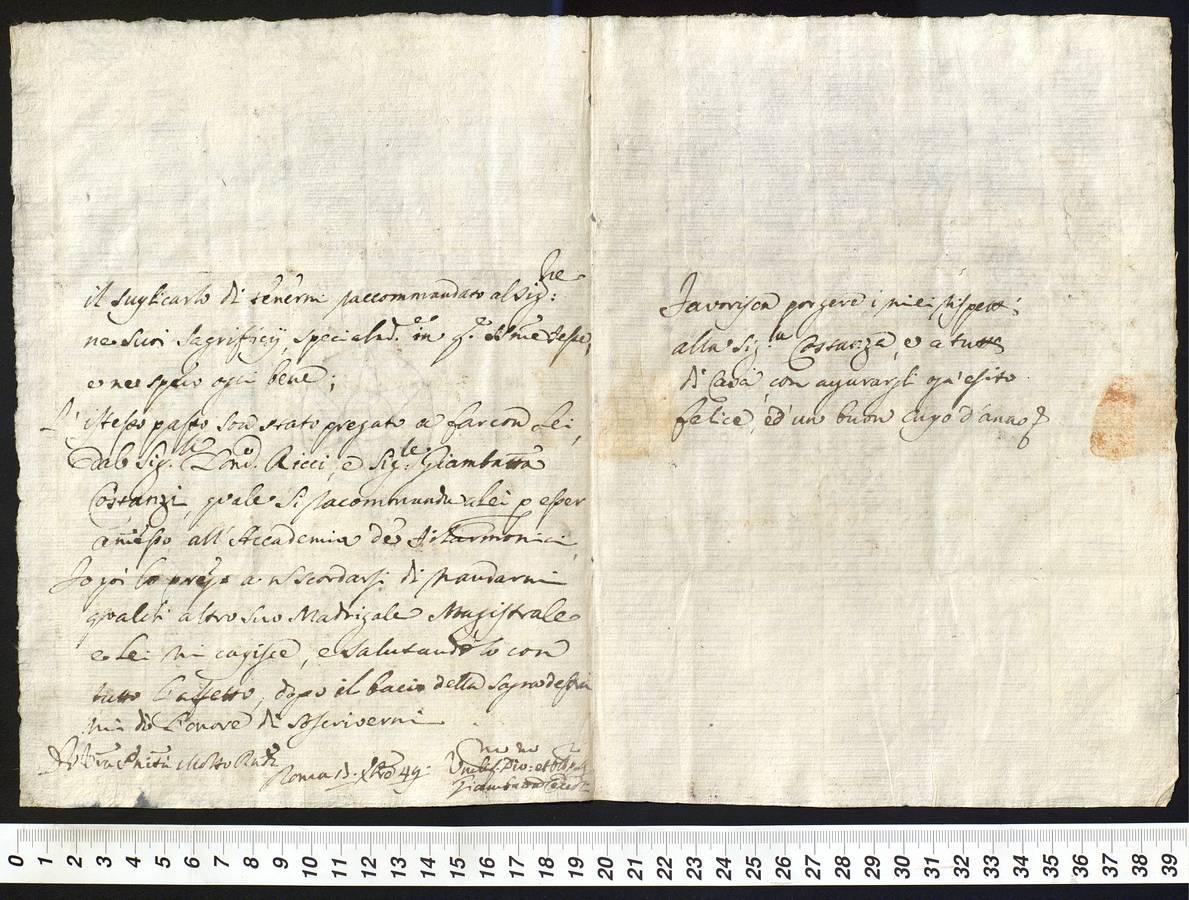 il suplicarlo di tenermi raccommandato al Sig:re
ne suoi sagrificij specialmd.e in q.e SS.me Feste,
e ne spero ogni bene;
L' istesso passo son stato pregato a far con Lei,
Dal Sig.le Lond. Ricci, e Sig.le Giambatta
Costanzi, quale si raccommanda a Lei p esser
amesso all' Accademia de Filarmonici,
Io poi lo prego a n scordarsi di mandarmi
qualch altro suo Madrigale Magistrale
e Lei mi capisce, e salutandolo con
tutto l'affetto, dopo il bacio della sagra destra
mi dò l'onore di soscrivermi
Di V.ra Pnità Molto Rndã
Roma 13. Xbre 49.
Umiliss.mo Dio: et Obbl.mo
Giambatta
Favorisca porgere i miei rispetti
alla Sig.ra Costanza, e a tutti
di Casa, con agurargli ogn' esito
felice, ed' un buon Capo d'anno
0 1 2 3 4 5 6 7 8 9 10 11 12 13 14 15 16 17 18 19 20 21 22 23 24 25 26 27 28 29 30 31 32 33 34 35 36 37 38 39